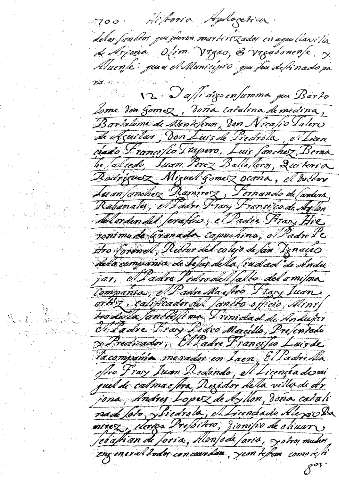 700. Historia Apologetica
delos santos que fueron martirizados en aquella villa
de Arjona Olim Vrgao, ò Vrgabonense y
Albense que es el Municipio que fue destinado pa
ra.
12. Y assi digo en summa que Barto
lome de Gomez, doña Catalina de medina,
Bartolome de
de Aguilar, Don Luis de Piedrola, el Licen
ciado Francisco Luis Sanchez
Juan Perez Ballestero, Quiteria
Rodriguez Miguel Gomez ocaña, el
Juan Sanchez Ramirez, Fernando de
el Padre Fray Francisco de Ayllon
del orden del Serafico, el Padre Fray
ronimo de Granada capuchino, el Padre Pe
dro Retor del colejo de san Ignacio
de la compañia de Jesus de la ciudad de Andu
jar, el Padre Pedro del de la misma
compañia, el Padre Maestro Fray Juan
ortiz, calificador del santo officio, Minis
tro de la santissima Trinidad de Andujar
el Padre Fray Pedro Presentado
y Predicador, el Padre Francisco Luis de
la compañia morador en Jaen, el Padre Ma
estro Fray Juan Redondo, el Licenciado mi
guel de calmaestra, Regidor de la villa de Ar
jona, Andres Lopez de Ayllon, doña catali
na de soto, y Piedrola, el Licenciado Alexo Ra
mirez, clerigo Presbitero, Dionisio de
sebastian de soria, Alonso de soria, y otros muchos,
en general todos concuerdan, y contestan
por